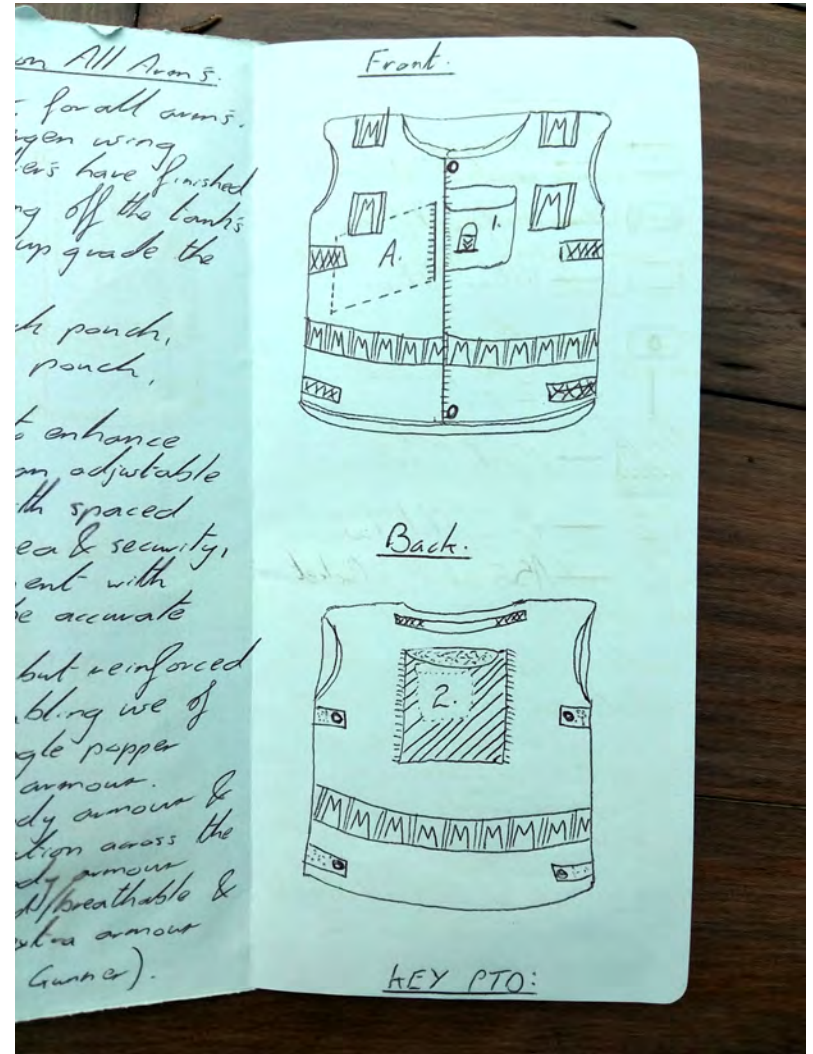 on All Arm's.
for all arms.
gen using
er's have finished
ng off the tank's
up grade the
h pouch,
pouch,
to enhance
an adjustable
th spaced
ea & security,
ent with
be accurate
but reinforced
bling use of
gle popper
armour.
dy armour &
tion across the
dy armour
/breathable &
xtra armour
Gunner).
Front.
M M
M M
1.
A.
M M M M M M M M M M
Back.
2.
M M M M M M M
KEY PTO: